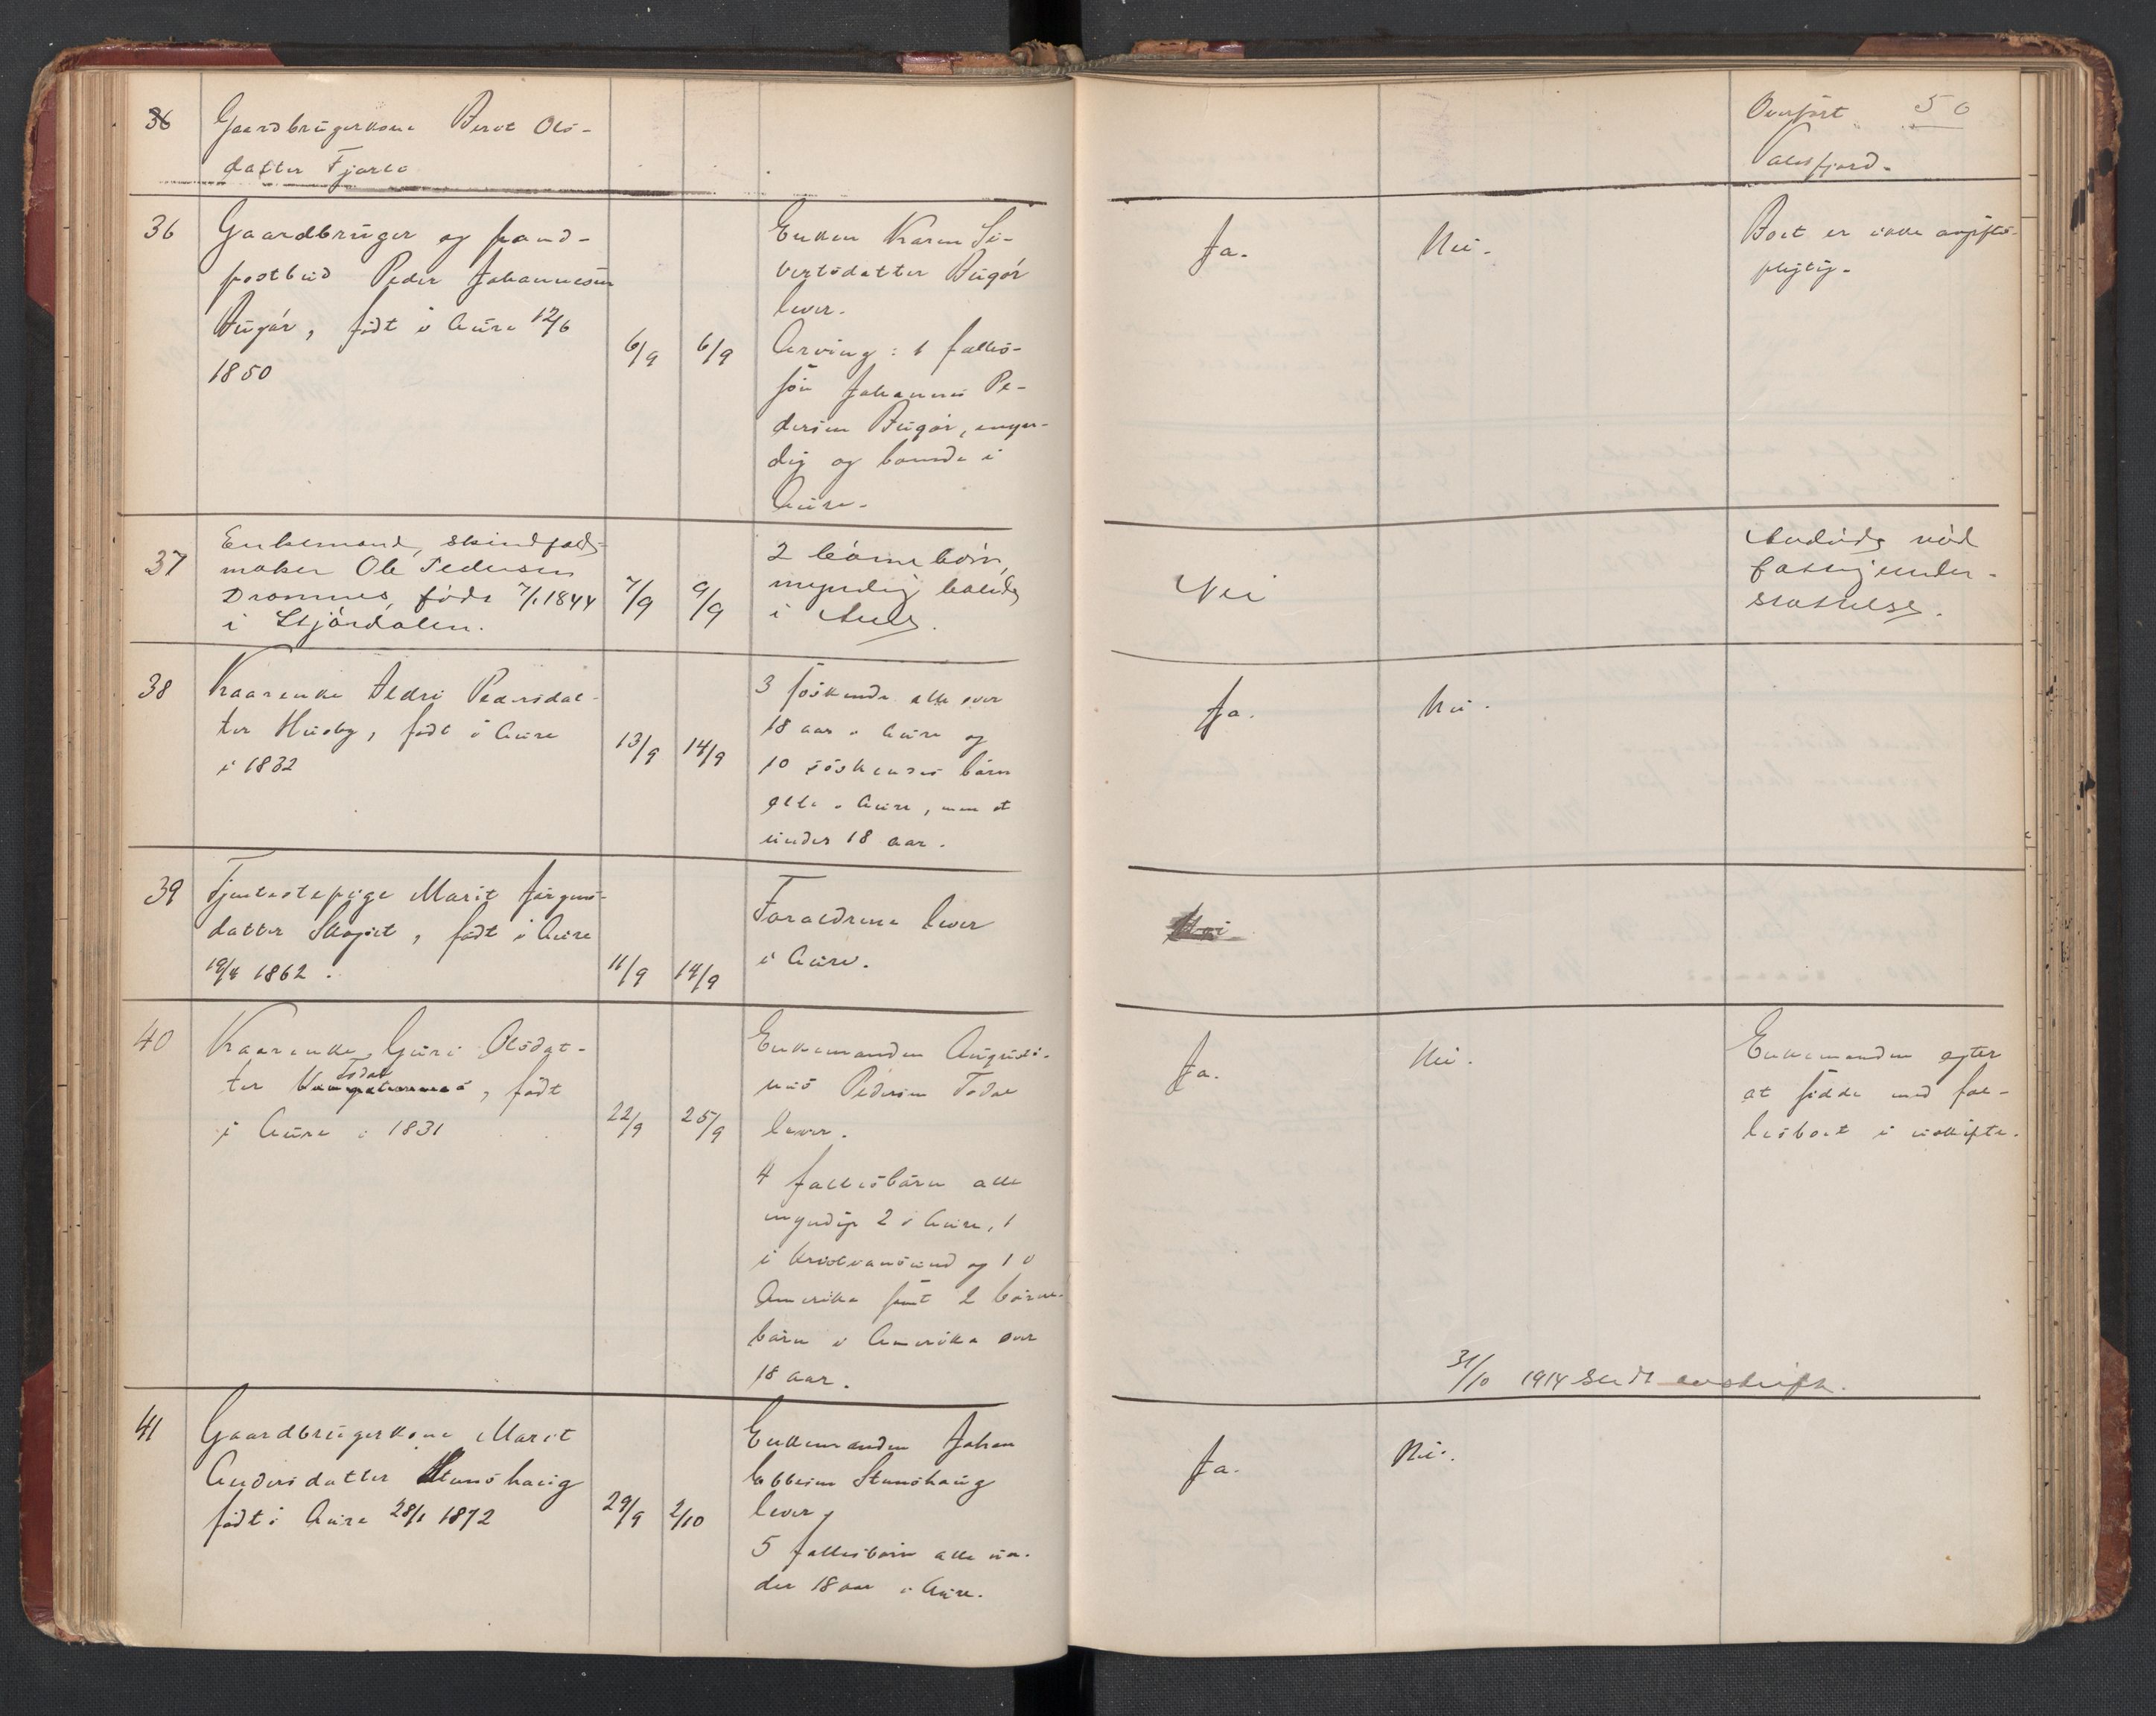 36 Gaardbrugerkone Beret Ols-
datter Fjørli
Overført 50
Valsfjord.
36 Gaardbruger og
postbud Peder Johannesen
Bugør, født i Aure 12/6
1850
6/9 6/9
Enken Karen Si-
vertsdatter Bugør
lever.
Arving: 1 fælles-
søn Johannes Pe-
dersen Bugør, myn-
dig og boende i
Aure.
Ja. Nei.
Boet er ikke avgifts-
pligtig.
37 Enkemand, skindfeld-
maker Ole Pedersen
Drommes, født 7/1 1844
i Stjørdalen.
7/9 9/9
2 børnebørn,
myndig
i Aure.
Nei
ved
fattigunder-
støttelse.
38 Kaarenke Aldri Pedersdat-
ter Husby, født i Aure
i 1832
13/9 14/9
3 søskende alle over
18 aar i Aure og
10 søskendes børn
alle i Aure, men et
under 18 aar.
Ja. Nei.
39 Tjenestepige Marit Jørgens-
datter Skogset, født i Aure
19/4 1862.
11/9 14/9
Forældrene lever
i Aure.
Nei
40 Kaarenke Guri Olsdat-
Todal
ter, født
i Aure i 1831
22/9 25/9
Enkemanden Augusti-
nus Pedersen Todal
lever.
4 fællesbørn alle
myndige 2 i Aure, 1
i Kristiansund og 1 i
Amerika samt 2 børne-
børn i Amerika over
18 aar.
Ja. Nei.
Enkemanden agter
at sidde med fæl-
lesboet i uskifte.
31/10 1914 sendt avskrift.
41 Gaardbrugerkone Marit
Andersdatter Stenshaug
født i Aure 28/1 1872
29/9 2/10
Enkemanden Johan
Ebbesen Stenshaug
lever,
5 fællesbørn alle un-
der 18 aar i Aure.
Ja. Nei.